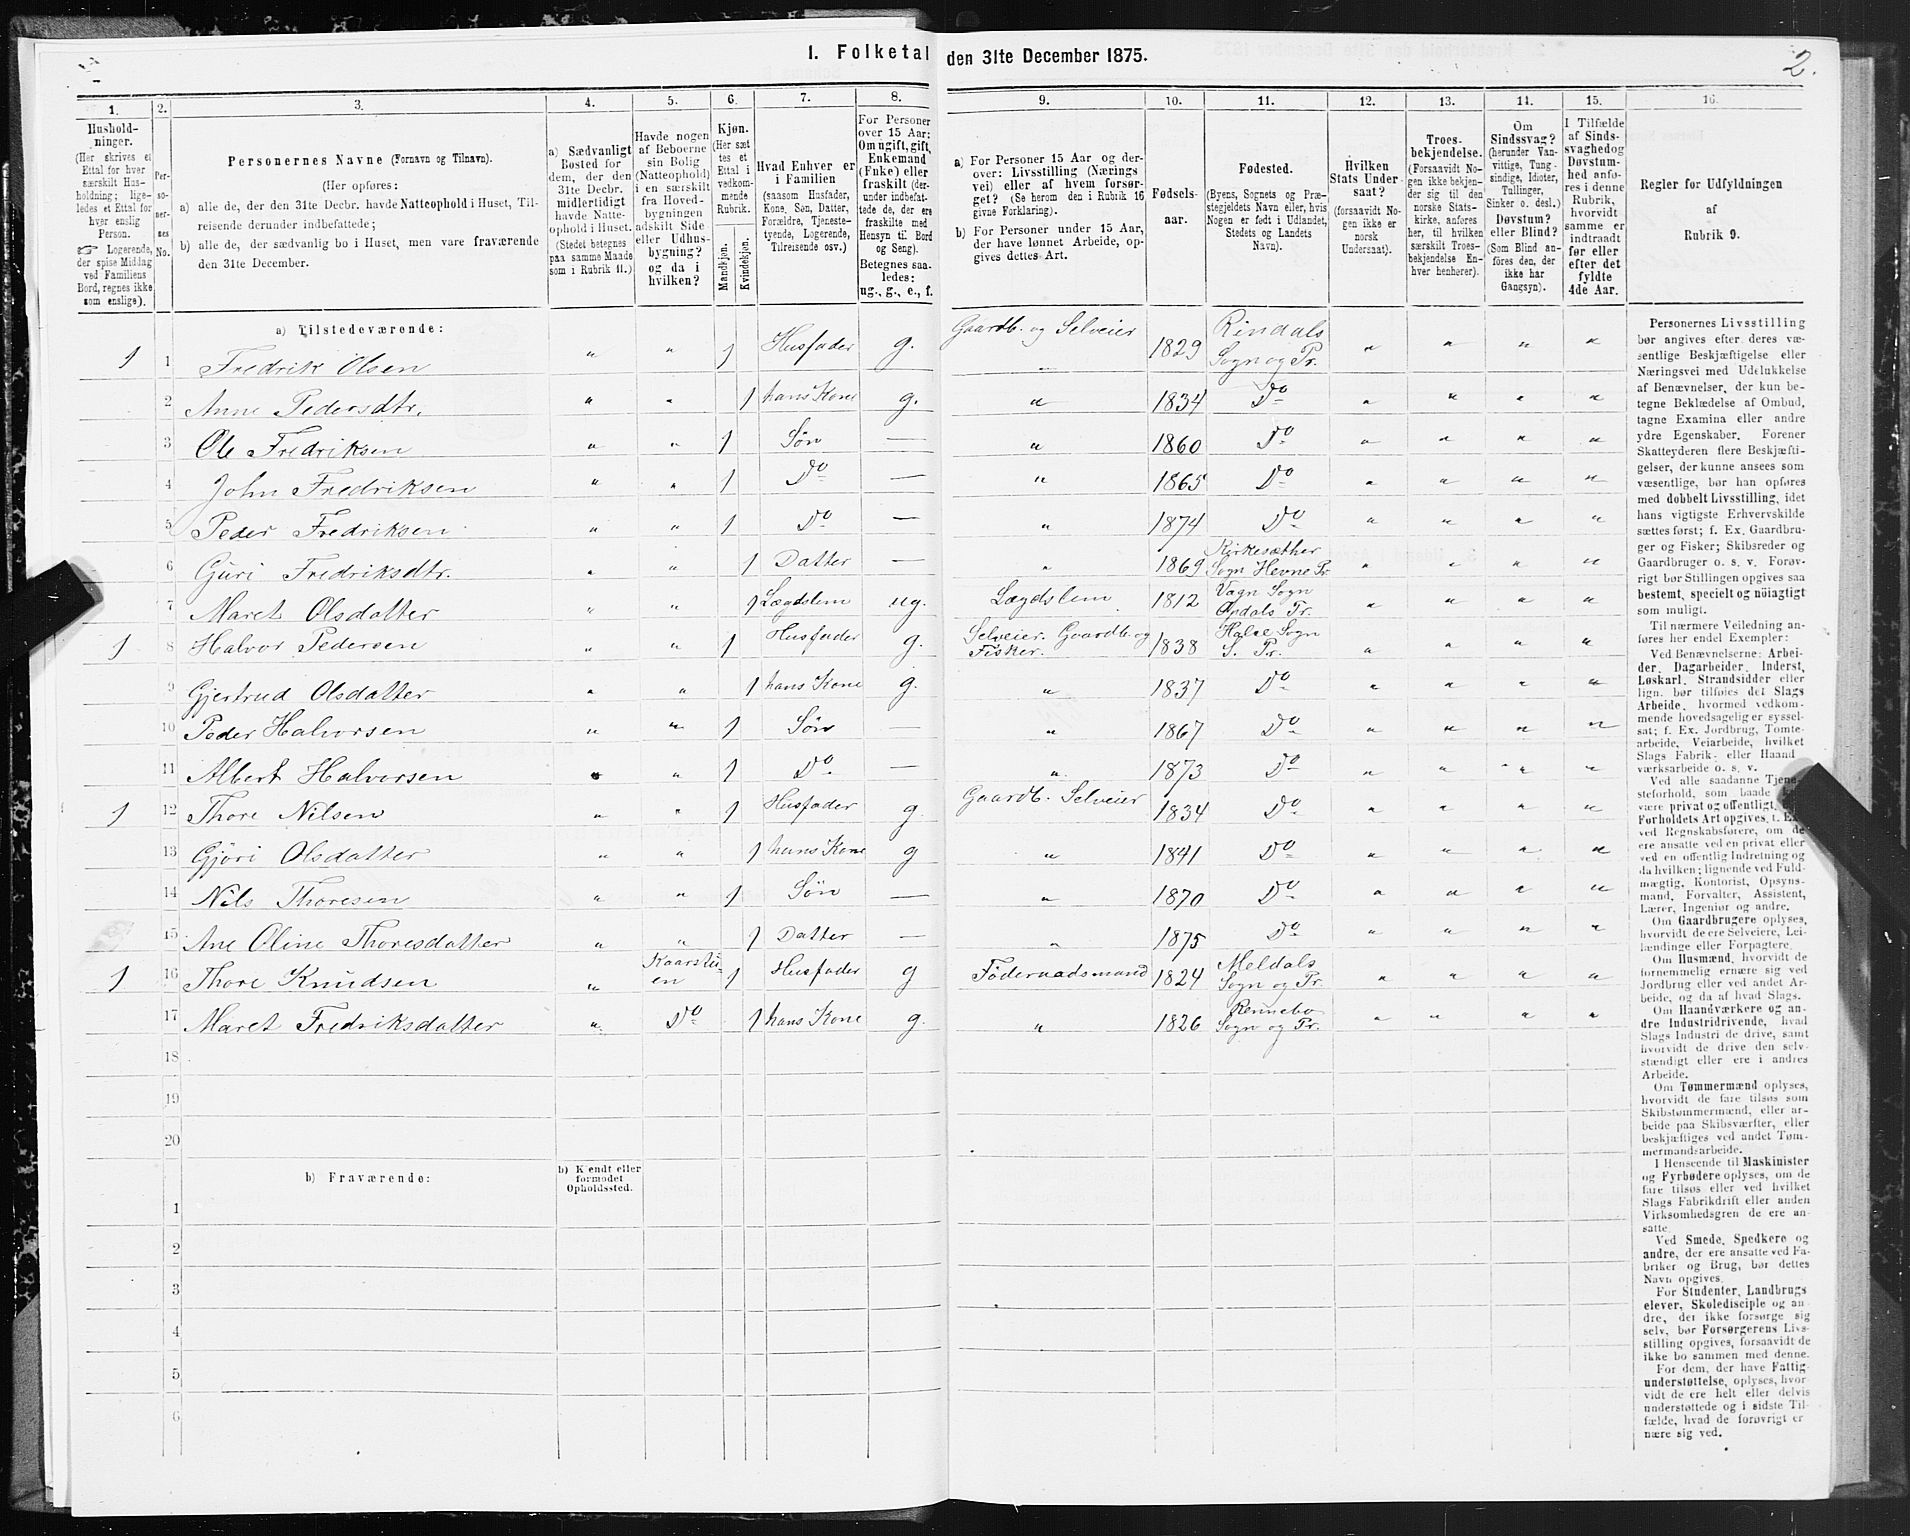 1. Folketal den 31te December 1875.
2.
1. 2. 3. 4. 5. 6. 7. 8. 9. 10. 11. 12. 13. 14. 15. 16.
Hushold-
ninger.
(Her skrives et
Ettal for hver
særskilt Hus-
holdning; lige-
ledes et Ettal for
hver enslig
Person.
☞ Logerende,
der spise Middag
ved Familiens
Bord, regnes ikke
som enslige).
Per-
so-
ner-
nes
No.
Personernes Navne (Fornavn og Tilnavn).
(Her opføres:
a) alle de, der den 31te Decbr. havde Natteophold i Huset, Til-
reisende derunder indbefattede;
b) alle de, der sædvanlig bo i Huset, men vare fraværende
den 31te December.
a) Sædvanligt
Bosted for
dem, der den
31te Decbr.
midlertidigt
havde Natte-
ophold i Huset.
(Stedet betegnes
paa samme Maade
som i Rubrik 11.)
Havde nogen
af Beboerne
sin Bolig
(Natteophold)
i en særskilt
fra Hoved-
bygningen
adskilt Side-
eller Udhus-
bygning?
og da i
hvilken?
Kjøn.
(Her sæt-
tes et
Ettal i
vedkom-
mende
Rubrik.
Mandkjøn.
Kvindekjøn.
Hvad Enhver er
i Familien
(saasom Husfader,
Kone, Søn, Datter,
Forældre, Tjeneste-
tyende, Logerende,
Tilreisende osv.)
For Personer
over 15 Aar:
Om ugift, gift,
Enkemand
(Fuke) eller
fraskilt (der-
under indbefat-
tede de, der ere
fraskilte med
Hensyn til Bord
og Seng).
Betegnes saa-
ledes:
ug., g., e., f.
a) For Personer 15 Aar og der-
over: Livsstilling (Nærings
vei) eller af hvem forsør-
get? (Se herom den i Rubrik 16
givne Forklaring).
b) For Personer under 15 Aar,
der have lønnet Arbeide, op-
gives dettes Art.
Fødsels-
aar.
Fødested.
(Byens, Sognets og Præ-
stegjeldets Navn eller, hvis
Nogen er født i Udlandet,
Stedets og Landets
Navn).
Hvilken
Stats Under-
saat?
(forsaavidt No-
gen ikke er
norsk
Undersaat).
Troes-
bekjendelse.
(Forsaavidt No-
gen ikke bekjen-
der sig til den
norske Stats-
kirke, anføres
her, til hvilken
særskilt Troes-
bekjendelse En-
hver henhører).
Om
Sindssvag?
(herunder Van-
vittige, Tung-
sindige, Idioter,
Tullinger,
Sinker o. desl.)
Døvstum?
eller Blind?
(Som Blind an-
føres den, der
ikke har
Gangsyn).
I Tilfælde
af Sinds-
svaghed og
Døvstum-
hed anfø-
res i denne
Rubrik,
hvorvidt
samme er
indtraadt
før eller
efter det
fyldte
4de Aar.
Regler for Udfyldningen
af
Rubrik 9.
a) Tilstedeværende:
1 1 Fredrik Olsen " " 1 Husfader g. Gaardb. og Selveier " 1829 Rindals Sogn og Pr. " " " "
2 Anne Pedersdtr. " " 1 hans Kone g. " 1834 Do " " " "
3 Ole Fredriksen " " 1 Søn — " 1860 Do " " " "
4 John Fredriksen " " 1 Do — " 1865 Do " " " "
5 Peder Fredriksen " " 1 Do — " 1874 Do " " " "
6 Guri Fredriksdtr. " " 1 Datter — " 1869 Kirkesæther Sogn Hevne Pr. " " " "
7 Maret Olsdatter " " 1 Lægdslem ug. Lægdslem 1812 Vagn Sogn Opdals Pr. " " " "
1 8 Halvor Pedersen " " 1 Husfader g. Selveier. Gaardb. og Fisker. 1838 Halse Sogn S. Pr. " " " "
9 Gjertrud Olsdatter " " 1 hans Kone g. " 1837 Do " " " "
10 Peder Halvorsen " " 1 Søn — " 1867 Do " " " "
11 Albert Halvorsen " " 1 Do — " 1873 Do " " " "
1 12 Thore Nilsen " " 1 Husfader g. Gaardb. Selveier 1834 Do " " " "
13 Gjøri Olsdatter " " 1 hans Kone g " 1841 Do " " " "
14 Nils Thoresen " " 1 Søn — " 1870 Do " " " "
15 Ane Oline Thoresdatter " " 1 Datter — " 1875 Do " " " "
1 16 Thore Knudsen " Kaarstu-en 1 Husfader g Föderaadsmand 1824 Meldals Sogn og Pr. " " " "
17 Maret Fredriksdatter " Do 1 hans Kone g. " 1826 Rennebo Sogn og Pr. " " " "
18
19
20
b) Fraværende:
b) Kjendt eller
formodet
Opholdssted.
1
2
3
4
5
6
Personernes Livsstilling
bør angives efter deres væ-
sentlige Beskjæftigelse eller
Næringsvei med Udelukkelse
af Benævnelser, der kun be-
tegne Beklædelse af Ombud,
tagne Examina eller andre
ydre Egenskaber. Forener
Skatteyderen flere Beskjæfti-
gelser, der kunne ansees som
væsentlige, bør han opføres
med dobbelt Livsstilling, idet
hans vigtigste Erhvervskilde
sættes først; f. Ex. Gaardbru-
ger og Fisker; Skibsreder og
Gaardbruger o. s. v. Forøv-
rigt bør Stillingen opgives saa
bestemt, specielt og nöiagtigt
som muligt.
Til nærmere Veiledning an-
føres her endel Exempler:
Ved Benævnelserne: Arbei-
der, Dagarbeider, Inderst,
Løskarl, Strandsidder eller
lign. bør tilføies det Slags
Arbeide, hvormed vedkom-
mende hovedsagelig er syssel-
sat; f. Ex. Jordbrug, Tomte-
arbeide, Veiarbeide, hvilket
Slags Fabrik- eller Haand
værksarbeide o. s. v.
Ved alle saadanne Tjene-
steforhold, som baade
være privat og offentligt,
Forholdets Art opgives, f. Ex.
ved Regnskabsførere, om de
ere ansatte ved en privat eller
ved en offentlig Indretning og
da hvilken; lignende ved Fuld-
mægtig, Kontorist, Opsyns-
mand, Forvalter, Assistent,
Lærer, Ingeniør og andre.
Om Gaardbrugere oplyses,
hvorvidt de ere Selveiere, Lei-
lændinge eller Forpagtere.
Om Husmænd, hvorvidt de
fornemmelig ernære sig ved
Jordbrug eller ved andet Ar-
beide, og da af hvad Slags.
Om Haandværkere og an-
dre Industridrivende, hvad
Slags Industri de drive, samt
hvorvidt de drive den selv-
stændigt eller ere i andres
Arbeide.
Om Tømmermænd oplyses,
hvorvidt de fare tilsøs som
Skibstømmermænd, eller ar-
beide paa Skibsværfter, eller
beskjæftiges ved andet Tøm-
mermandsarbeide.
I Henseende til Maskinister
og Fyrbødere oplyses, om de
fare tilsøs eller ved hvilket
Slags Fabrikdrift eller anden
Virksomhedsgren de ere an-
satte.
Ved Smede, Spedkere og
andre, der ere ansatte ved Fa-
briker og Brug, bør dettes
Navn opgives.
For Studenter, Landbrugs
elever, Skoledisciple og an-
dre, der ikke forsørge sig
selv, bør Forsørgerens Livs-
stilling opgives, forsaavidt de
ikke bo sammen med denne.
For dem, der have Fattig-
understøttelse, oplyses, hvor-
vidt de ere helt eller delvis
understøttede og i sidste Til-
fælde, hvad de forøvrigt er
nære sig ved.